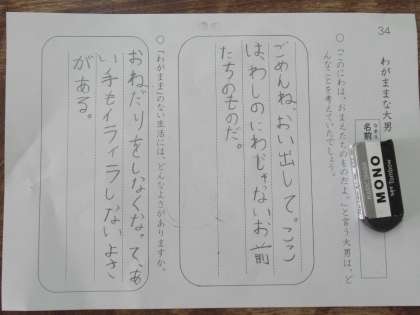 34
わがままな大男
名前
○「このにわは、おまえたちのものだよ。」と言う大男は、ど
んなことを考えていたでしょう。
ごめんね、おい出して。ここ
は、わしのにわじゃないお前
たちのものだ。
○「わがまま」のない生活には、どんなよさがありますか。
おねだりをしなくなって、あ
い手もイライラしないよさ
がある。
MONO